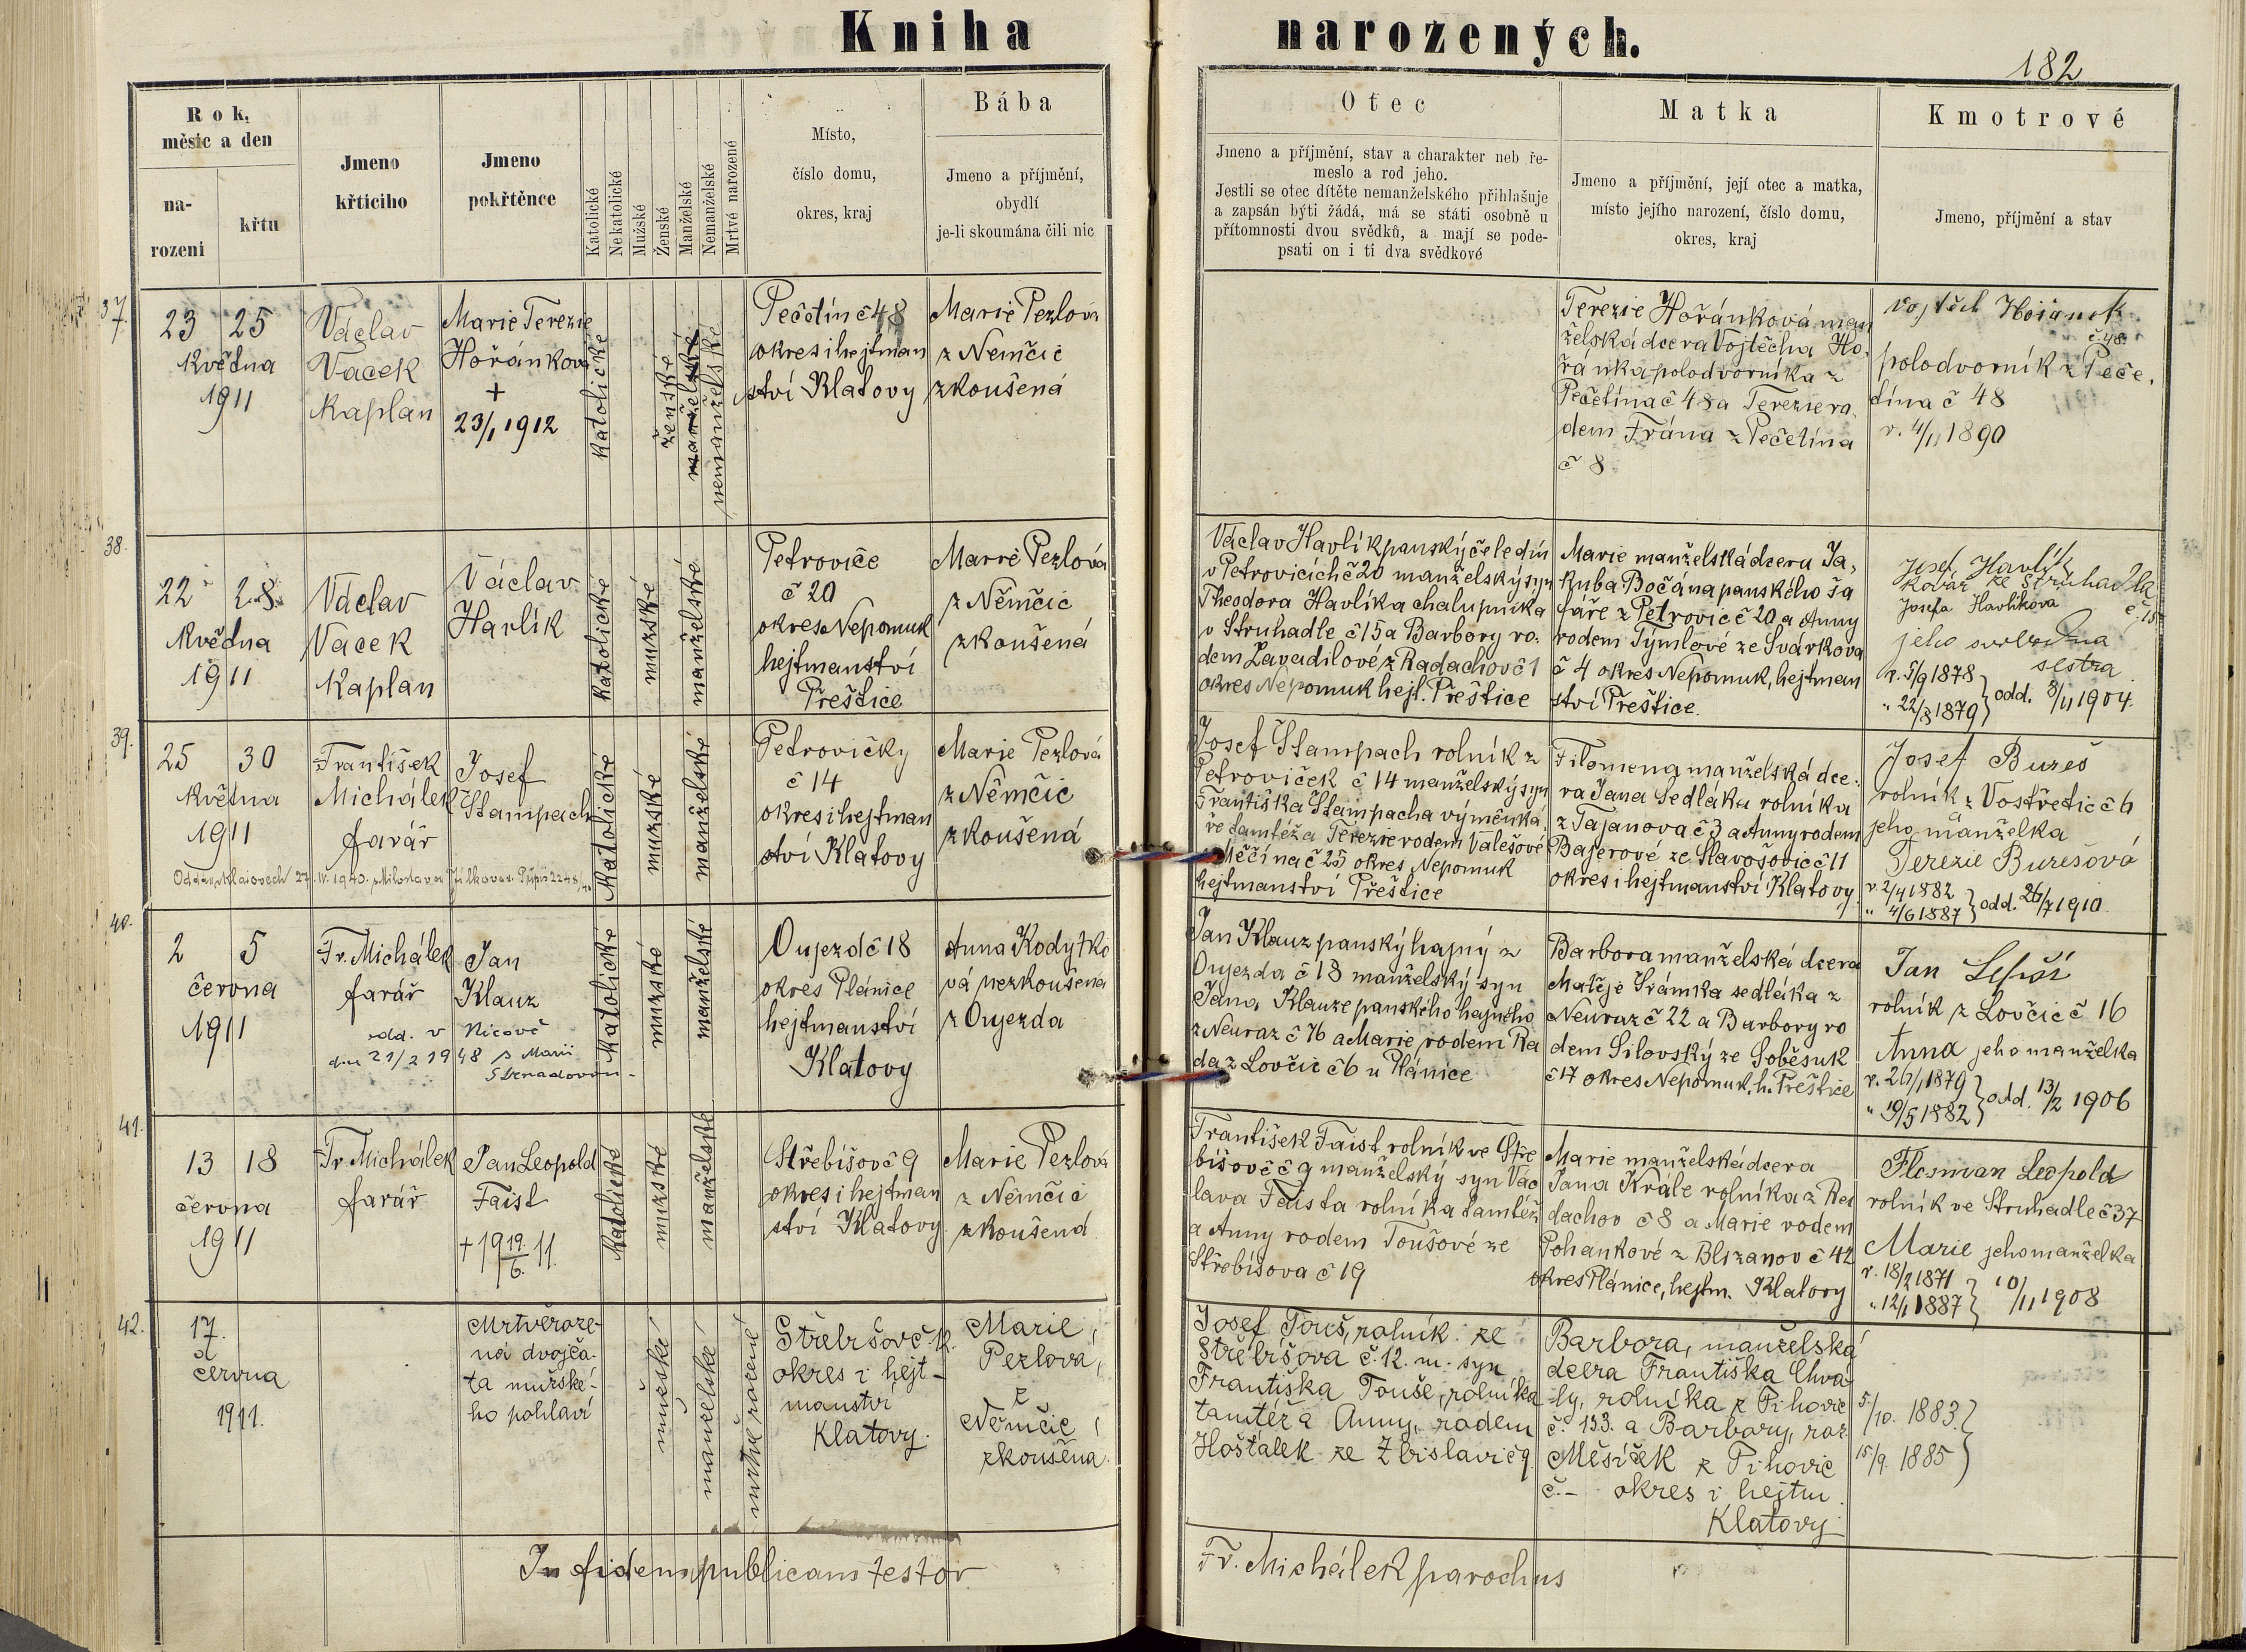 Kniha narozených.
182
Rok, měsíc a den
na-
rození
křtu
Jmeno
křticiho
Jmeno
pokřtěnce
Katolické
Nekatolické
Mužské
Ženské
Manželské
Nemanželské
Mrtvé narozené
Místo,
číslo domu,
okres, kraj
Bába
Jmeno a příjmění,
obydlí
je-li skoumána čili nic
Otec
Jmeno a příjmění, stav a charakter neb ře-
meslo a rod jeho.
Jestli se otec dítěte nemanželského přihlašuje
a zapsán býti žádá, má se státi osobně u
přítomnosti dvou svědků, a mají se pode-
psati on i ti dva svědkové
Matka
Jmeno a příjmění, její otec a matka,
místo jejího narození, číslo domu,
okres, kraj
Kmotrové
Jmeno, příjmění a stav
37.
23 25
Května
1911
Václav
Vacek
Kaplan
Marie Terezie
Hořánková
+
23/1 1912
katolické
ženské
manželské
nemanželské
Pečetín č 48
okres i hejtman
ství Klatovy
Marie Pezlová
z Němčic
zkoušená
Terezie Hořánková man
želská dcera Vojtěcha Ho.
řánka polodvorníka z
Pečetína č 48 a Terezie ro.
dem Frána z Pečetína
č 8.
Vojtěch Hořánek
č. 48.
polodvorník z Peče.
tína č 48
r. 4/11 1890
38.
22 28.
Května
1911
Václav
Vacek
Kaplan
Václav
Havlík
katolické
mužské
manželské
Petroviče
č 20
okres Nepomuk
hejtmanství
Přeštice
Marie Pezlová
z Němčic
zkoušená
Václav Havlík panský čeledín
v Petrovicích č 20 manželský syn
Theodora Havlíka chalupníka
v Struhadle č 15 a Barbory ro.
dem Zavadilové z Radachov č 1
okres Nepomuk hejt. Přeštice
Marie manželská dcera Ja,
kuba Bočána panského ša
fáře z Petrovic č 20 a Anny
rodem Týmlové ze Svárkova
č 4 okres Nepomuk, hejtman
ství Přeštice.
Josef Havlík
kovář ze Struhadla
Josefa Havlíková č. 15
jeho svobodna
sestra
r. 5/9 1878
" 22/8 1879 } odd. 8/11 1904.
39.
25 30
Května
1911
František
Michálek
farář
Josef
Stampach
katolické
mužské
manželské
Petrovičky
č 14
okres i hejtman
ství Klatovy
Marie Pezlová
z Němčic
zkoušená
Josef Stampach rolník z
Petroviček č 14 manželský syn
Františka Stampacha výměnká,
ře tamtéž a Terezie rodem Valešové
Měčína č 25 okres Nepomuk
hejtmanství Přeštice
Filomena manželská dce.
ra Jana Sedláka rolníka
z Tajanova č 3 a Anny rodem
Bajerové ze Slavošovic č 11
okres i hejtmanství Klatovy
Josef Bureš
rolník z Vostřetic č 6
jeho manželka
Terezie Burešová
r. 2/4 1882
" 4/6 1887 } odd. 26/7 1910.
40.
2 5
června
1911
Fr. Michálek
farář
Jan
Klauz
odd. v Nicově
dne 21/2 1948 s Marií
Strnadovou
katolické
mužské
manželské
Oujezd č 18
okres Plánice
hejtmanství
Klatovy
Anna Kodytko
vá nezkoušena
z Oujezda
Jan Klauz panský hajný z
Oujezda č 18 manželský syn
Jana Klauze panského hajného
z Neuraz č 76 a Marie rodem Ra
da z Lovčic č 6 u Plánice
Barbora manželská dcera
Matěje Šrámka sedláka z
Neuraz č 22 a Barbory ro
dem Silovský ze Soběsuk
č 17 okres Nepomuk, h. Přeštice
Jan
rolník z Lovčic č 16
Anna jeho manželka
r. 26/1 1879
" 19/5 1882 } odd. 13/2 1906
41.
13 18
června
1911
Fr. Michálek
farář
Jan Leopold
Faist
+ 19 19./6. 11.
katolické
mužské
manželské
Střebišov č 9
okres i hejtman
ství Klatovy
Marie Pezlová
z Němčic
zkoušená
František Faist rolník ve Stře
bišově č 9 manželský syn Vác
lava Faista rolníka tamtéž
a Anny rodem Toušové ze
Střebišova č 19
Marie manželská dcera
Jana Krále rolníka z Ra
dachov č 8 a Marie rodem
Pohankové z Blizanov č 42
okres Plánice, hejtm. Klatovy
Flosman Leopold
rolník ve Struhadle č 37
Marie jeho manželka
r. 18/2 1871
" 12/1 1887 } 10/11 1908
42.
17.
června
1911.
Mrtvěroze-
ná dvojča-
ta mužské-
ho pohlaví
mužské
manželské
mrtvě rozené
Střebišov č. 12.
okres i hejt-
manství
Klatovy.
Marie
Pezlová,
z
Němčic,
zkoušená.
Josef Touš, rolník ze
Střebišova č. 12. m. syn
Františka Touše, rolníka
tamtéž a Anny, rodem
Hoštálek ze Zbislavi č 9.
Barbora, manželská
dcera Františka Chvá
ly, rolníka z Tihovic
č. 133. a Barbory, roz.
Měsíček z Tihovic
č. – okres i hejtm.
Klatovy
5/10. 1883.
15/9. 1885 }
In fidem publicam testor
Fr. Michálek parochus